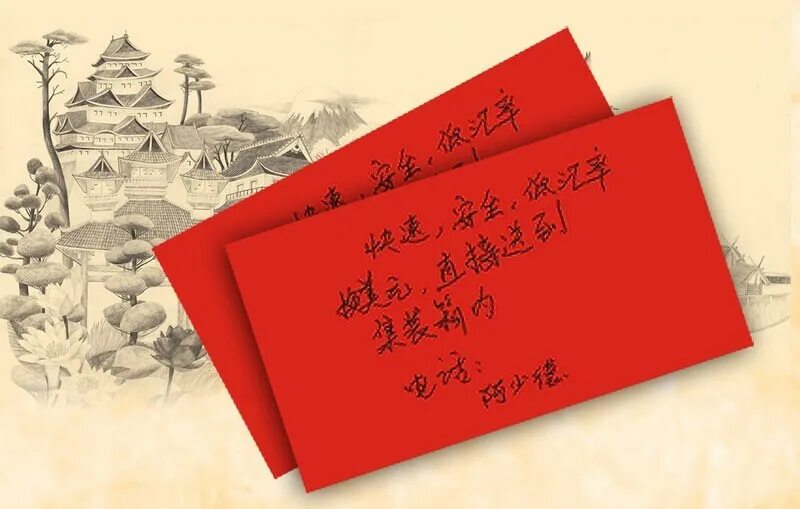 快速，安全，低汇率
快速，安全，低汇率
换美元，直接送到
集装箱内
电话：
阿少德